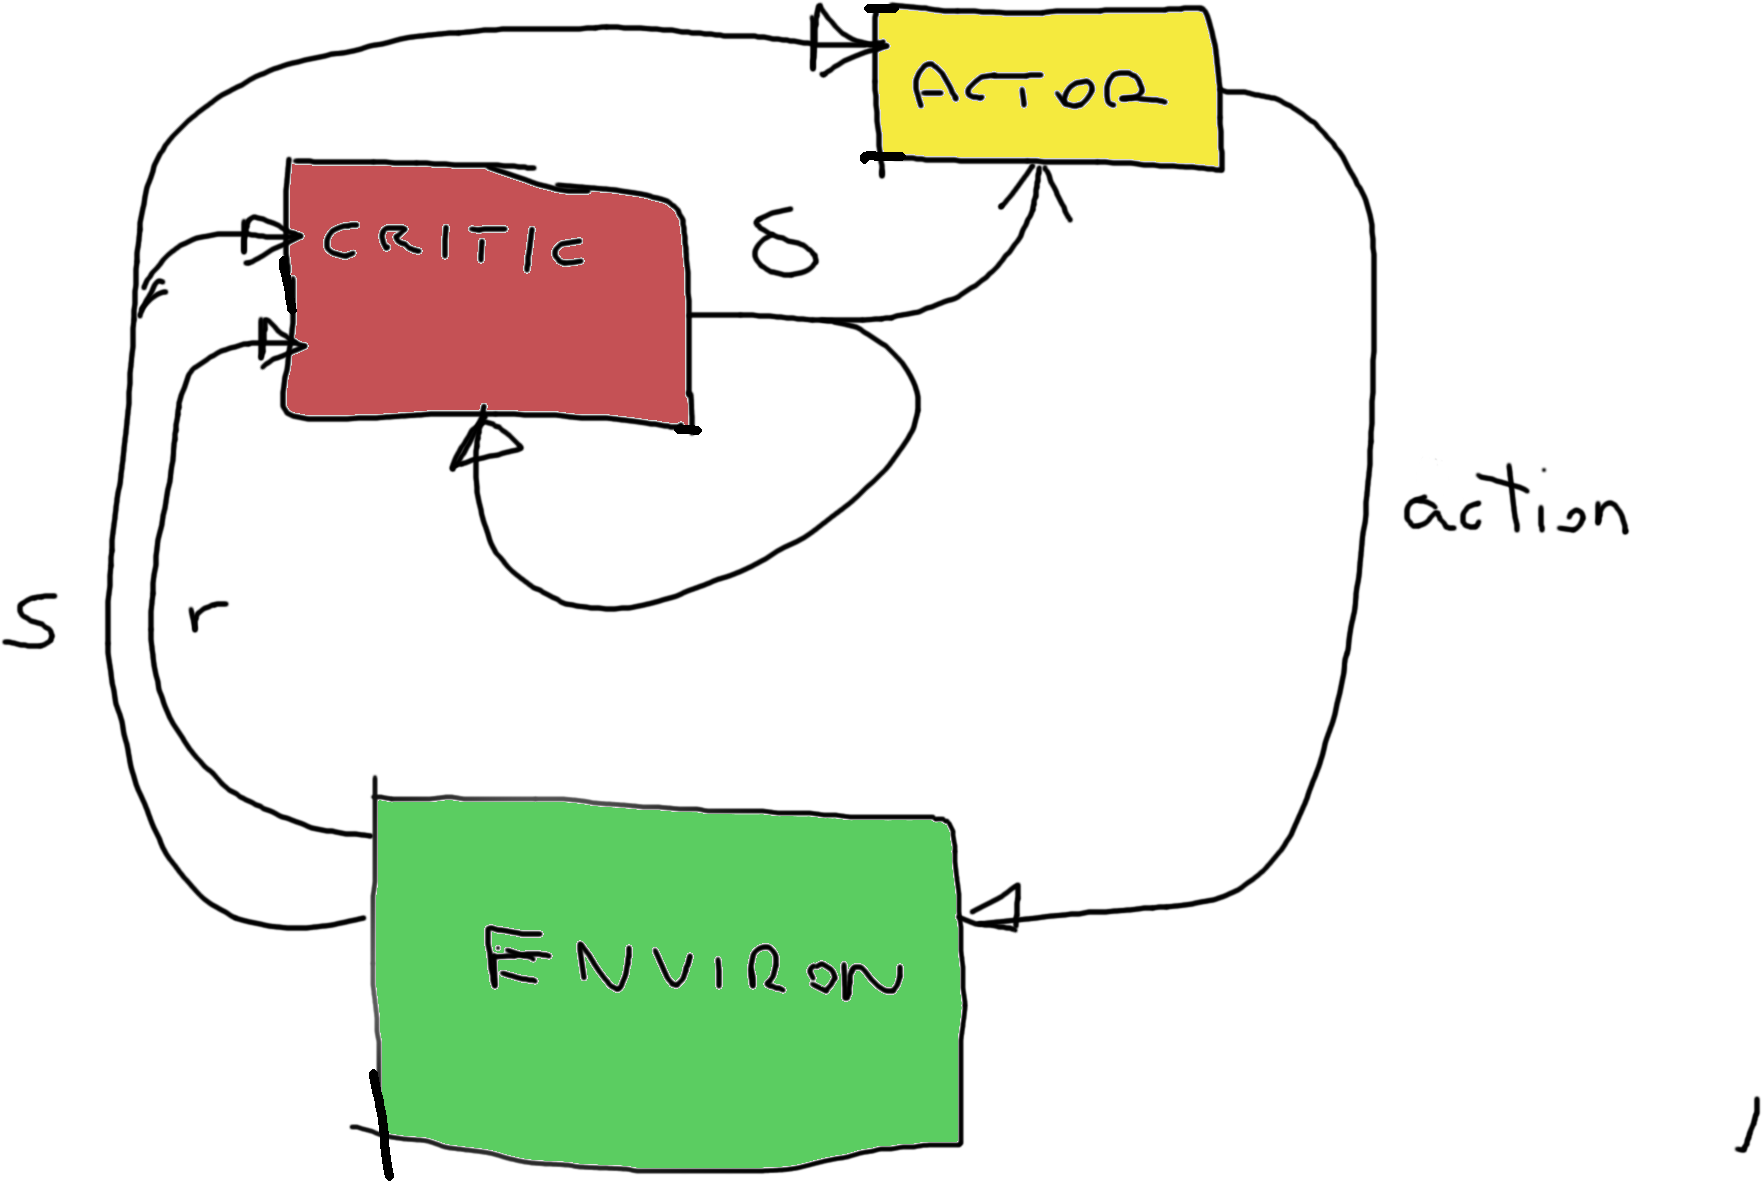 ACTOR
CRITIC
δ
action
s
r
ENVIRON